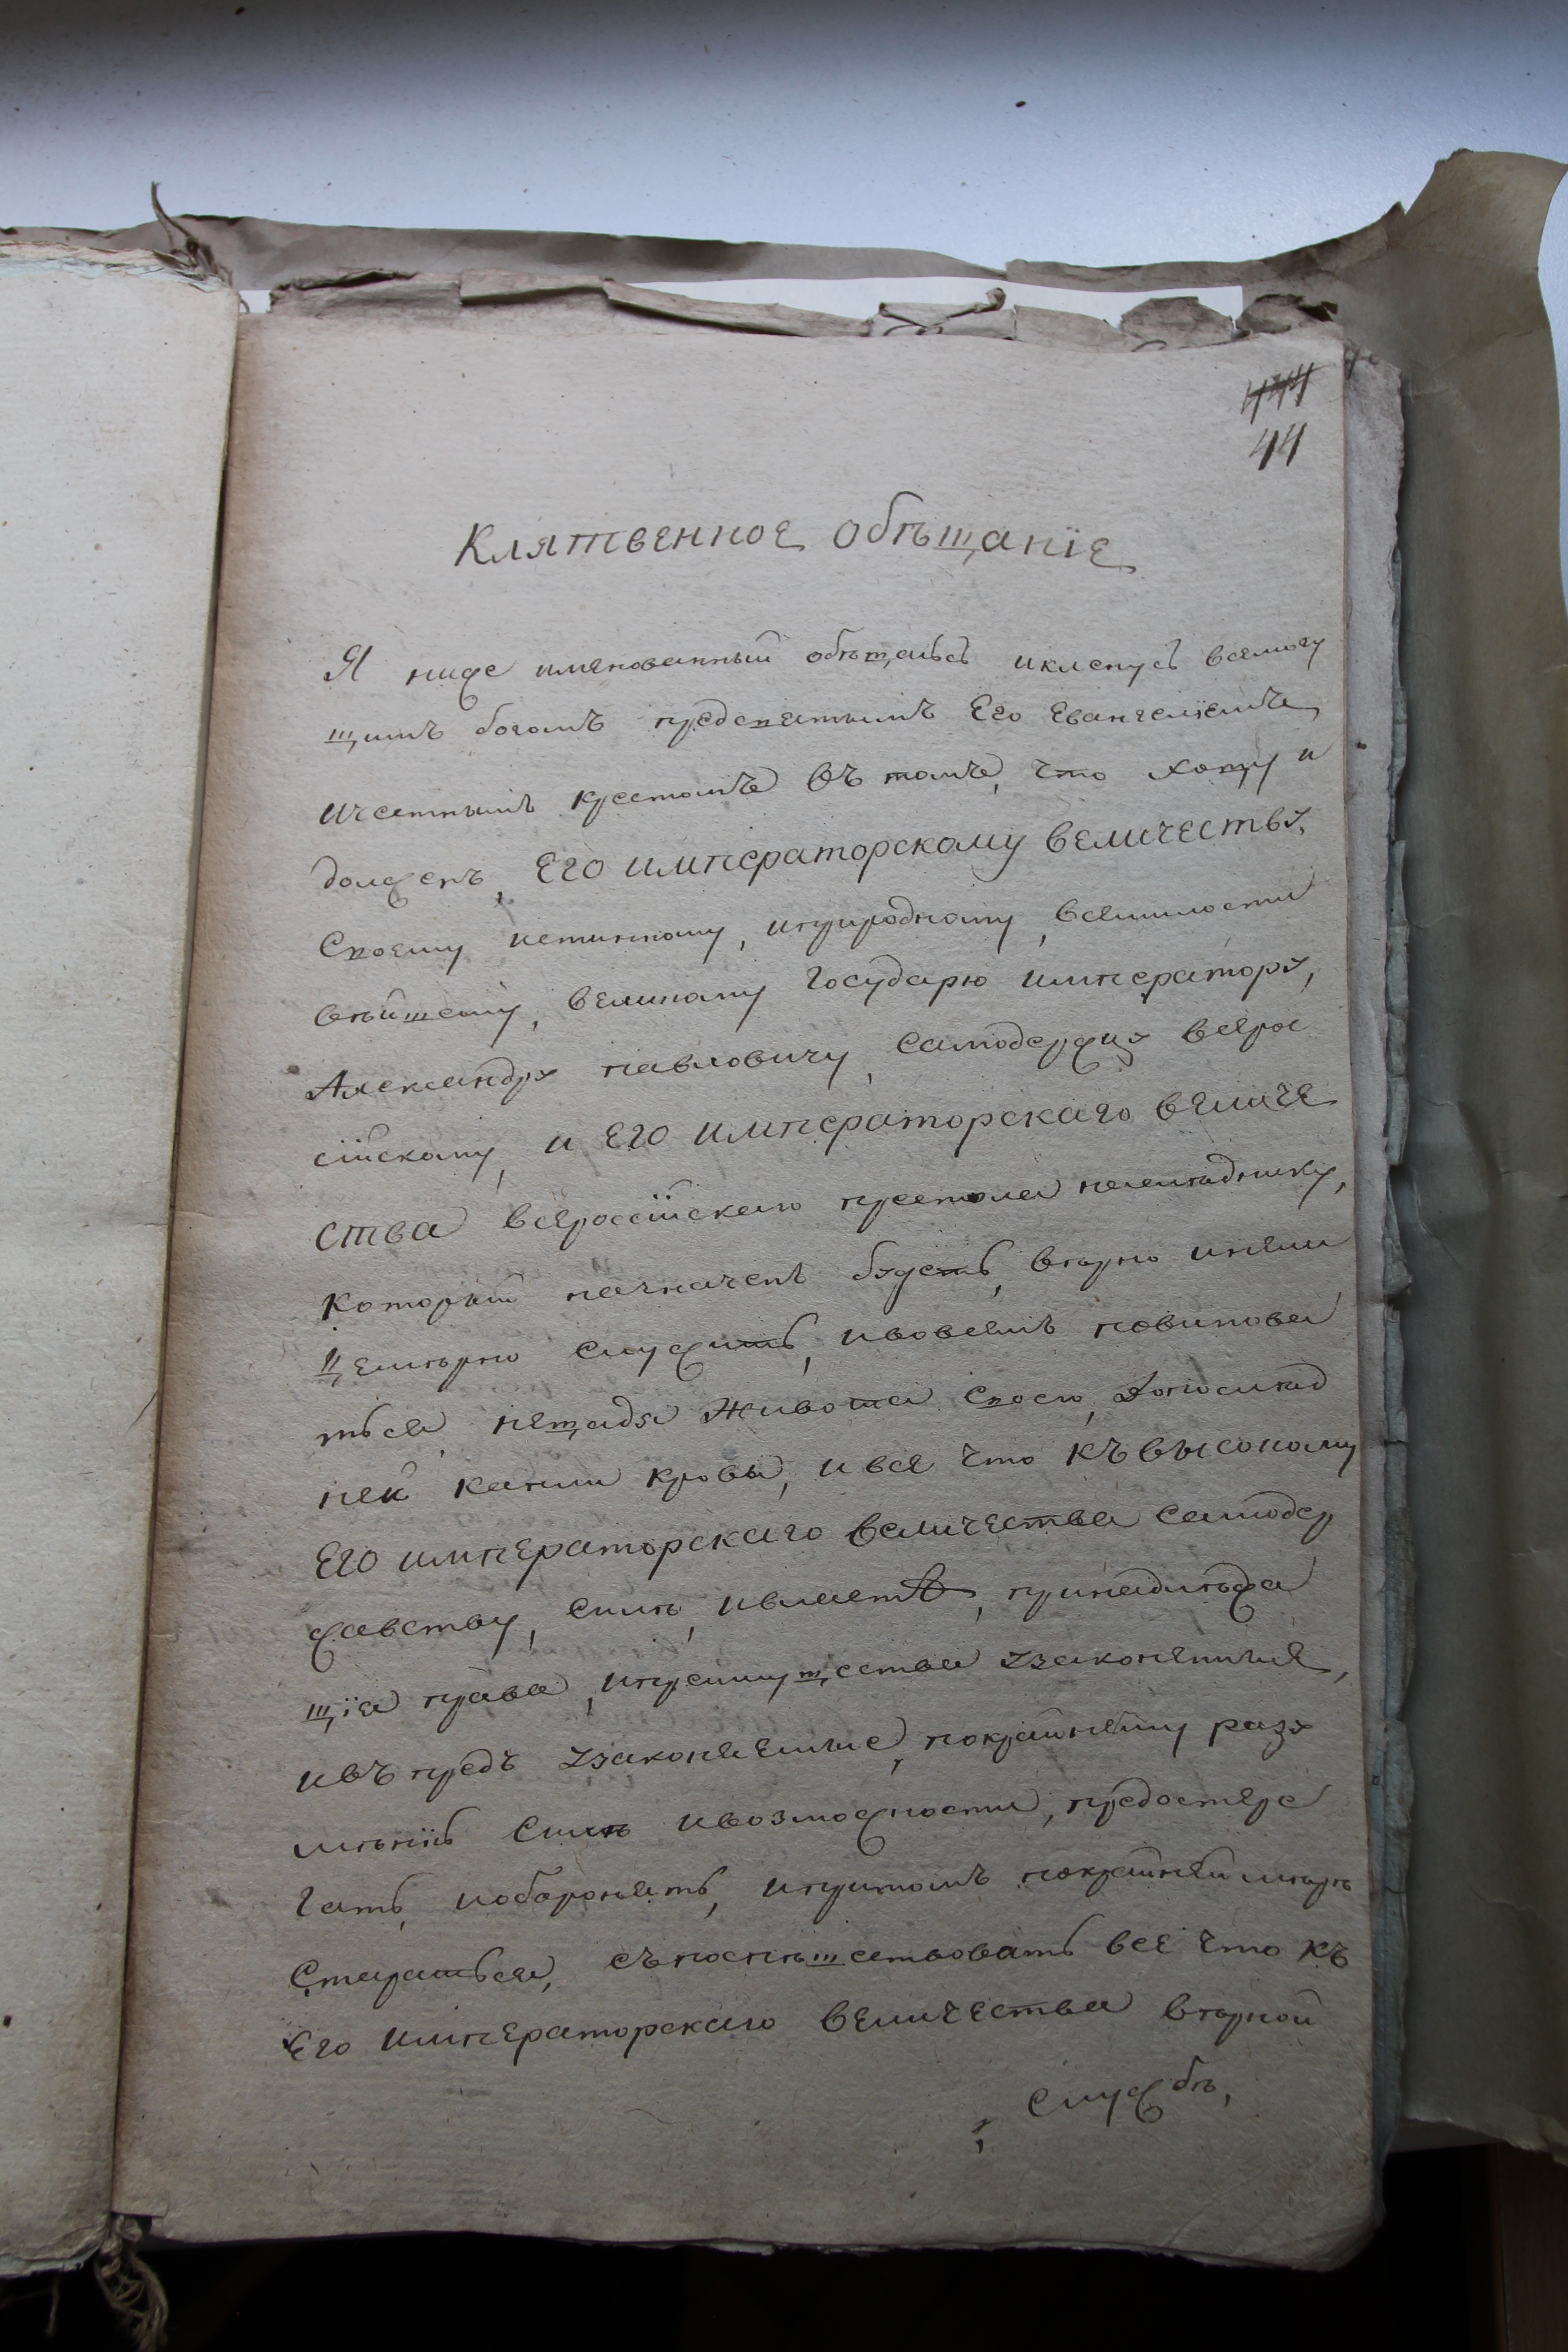 444
44
Клятвенное обѣщаніе
Я ниже имянованный обѣщаюсь иклянусь всемогу
щимъ богомъ предсвятымъ Его Евангелiемъ
ичестнымъ крестомъ въ томъ, что хощу и
долженъ, Его императорскому величеству,
Своему истинному, иприродному, всемилости
вѣйшему, великому Государю императору,
Александру павловичу, самодержцу всерос
сійскому, и Его императорскаго величе
ства всероссійскаго престола наслѣднику,
который назначенъ будетъ, вѣрно инели
цемѣрно служить, ивовсемъ повинова
ться, нещадя живота своего, допослѣд
ней капли крови, и все что къ высокому
Его императорскаго величества самодер
жавству, силѣ, ивласти, принадлѣжа
щіа права, ипреимущества узаконенныя,
ивъ предъ узаконяемые, покрайнему разу
мѣнію силѣ ивозможности, предостере
гать, иоборонять, ипритомъ покрайней мѣрѣ
Старатьса, съпоспѣшествовать все что къ
Его императорскаго величества вѣрной
службѣ,